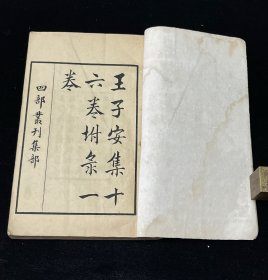 王子安集十
六卷坿彔一
卷
四部叢刊集部